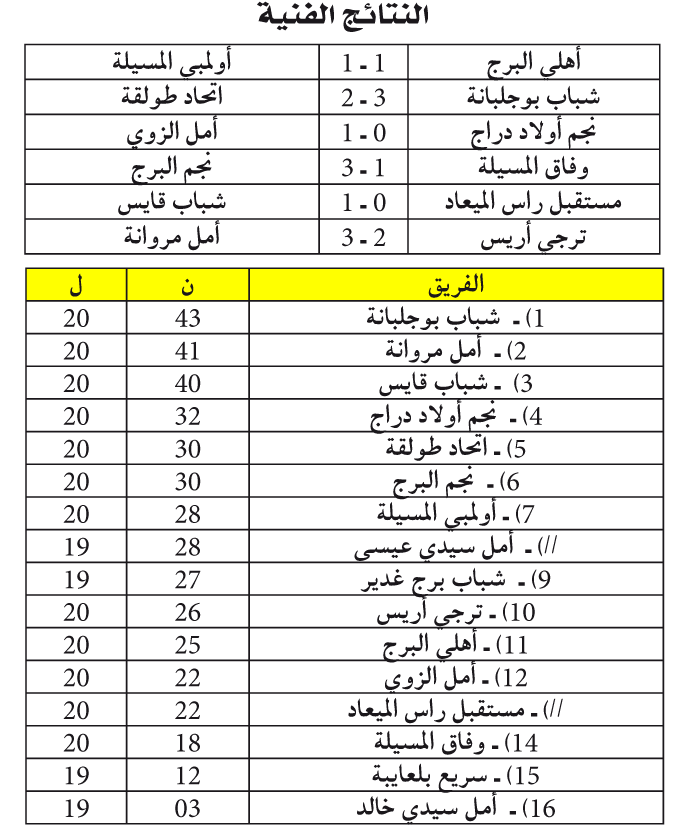 النتائج الفنية
أهلي البرج 1 ـ 1 أولمبي المسيلة
شباب بوجلبانة 3 ـ 2 اتحاد طولقة
نجم أولاد دراج 0 ـ 1 أمل الزوي
وفاق المسيلة 1 ـ 3 نجم البرج
مستقبل راس الميعاد 0 ـ 1 شباب قايس
ترجي أريس 2 ـ 3 أمل مروانة
الفريق ن ل
1) ـ شباب بوجلبانة 43 20
2) ـ أمل مروانة 41 20
3) ـ شباب قايس 40 20
4) ـ نجم أولاد دراج 32 20
5) ـ اتحاد طولقة 30 20
6) ـ نجم البرج 30 20
7) ـ أولمبي المسيلة 28 20
//) ـ أمل سيدي عيسى 28 19
9) ـ شباب برج غدير 27 19
10) ـ ترجي أريس 26 20
11) ـ أهلي البرج 25 20
12) ـ أمل الزوي 22 20
//) ـ مستقبل راس الميعاد 22 20
14) ـ وفاق المسيلة 18 20
15) ـ سريع بلعايبة 12 19
16) ـ أمل سيدي خالد 03 19